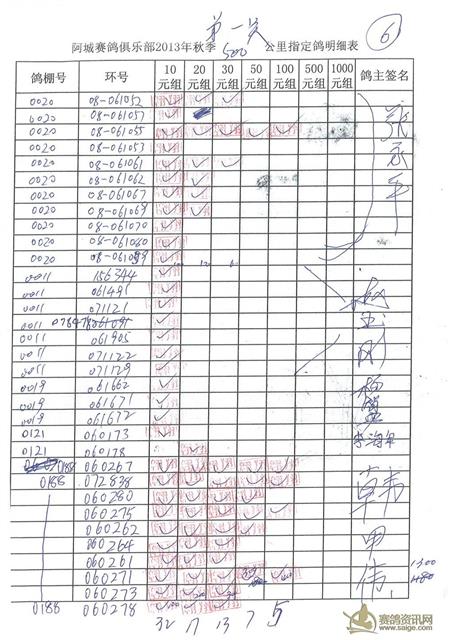 第一关 ⑥
阿城赛鸽俱乐部2013年秋季 500 公里指定鸽明细表
鸽棚号 环号 10元组 20元组 30元组 50元组 100元组 500元组 1000元组 鸽主签名
0020 08-061052
0020 08-061057
0020 08-061055
0020 08-061053
0020 08-061061
0020 08-061062
0020 08-061067
0020 08-061069
0020 08-061070
0020 08-061060
0020
0011 156344
0011 061491
0011 071121
0011
0011 061905
0011 071122
0011 071129
0019 061662
0019 061671
0019 061672
0121 060173
0121 060178
0188 060267
0188 072838
060280
060275
060262
060264
060261
060271
060273
0188 060278
32 17 13 7 5
赛鸽资讯网
www.saige.com